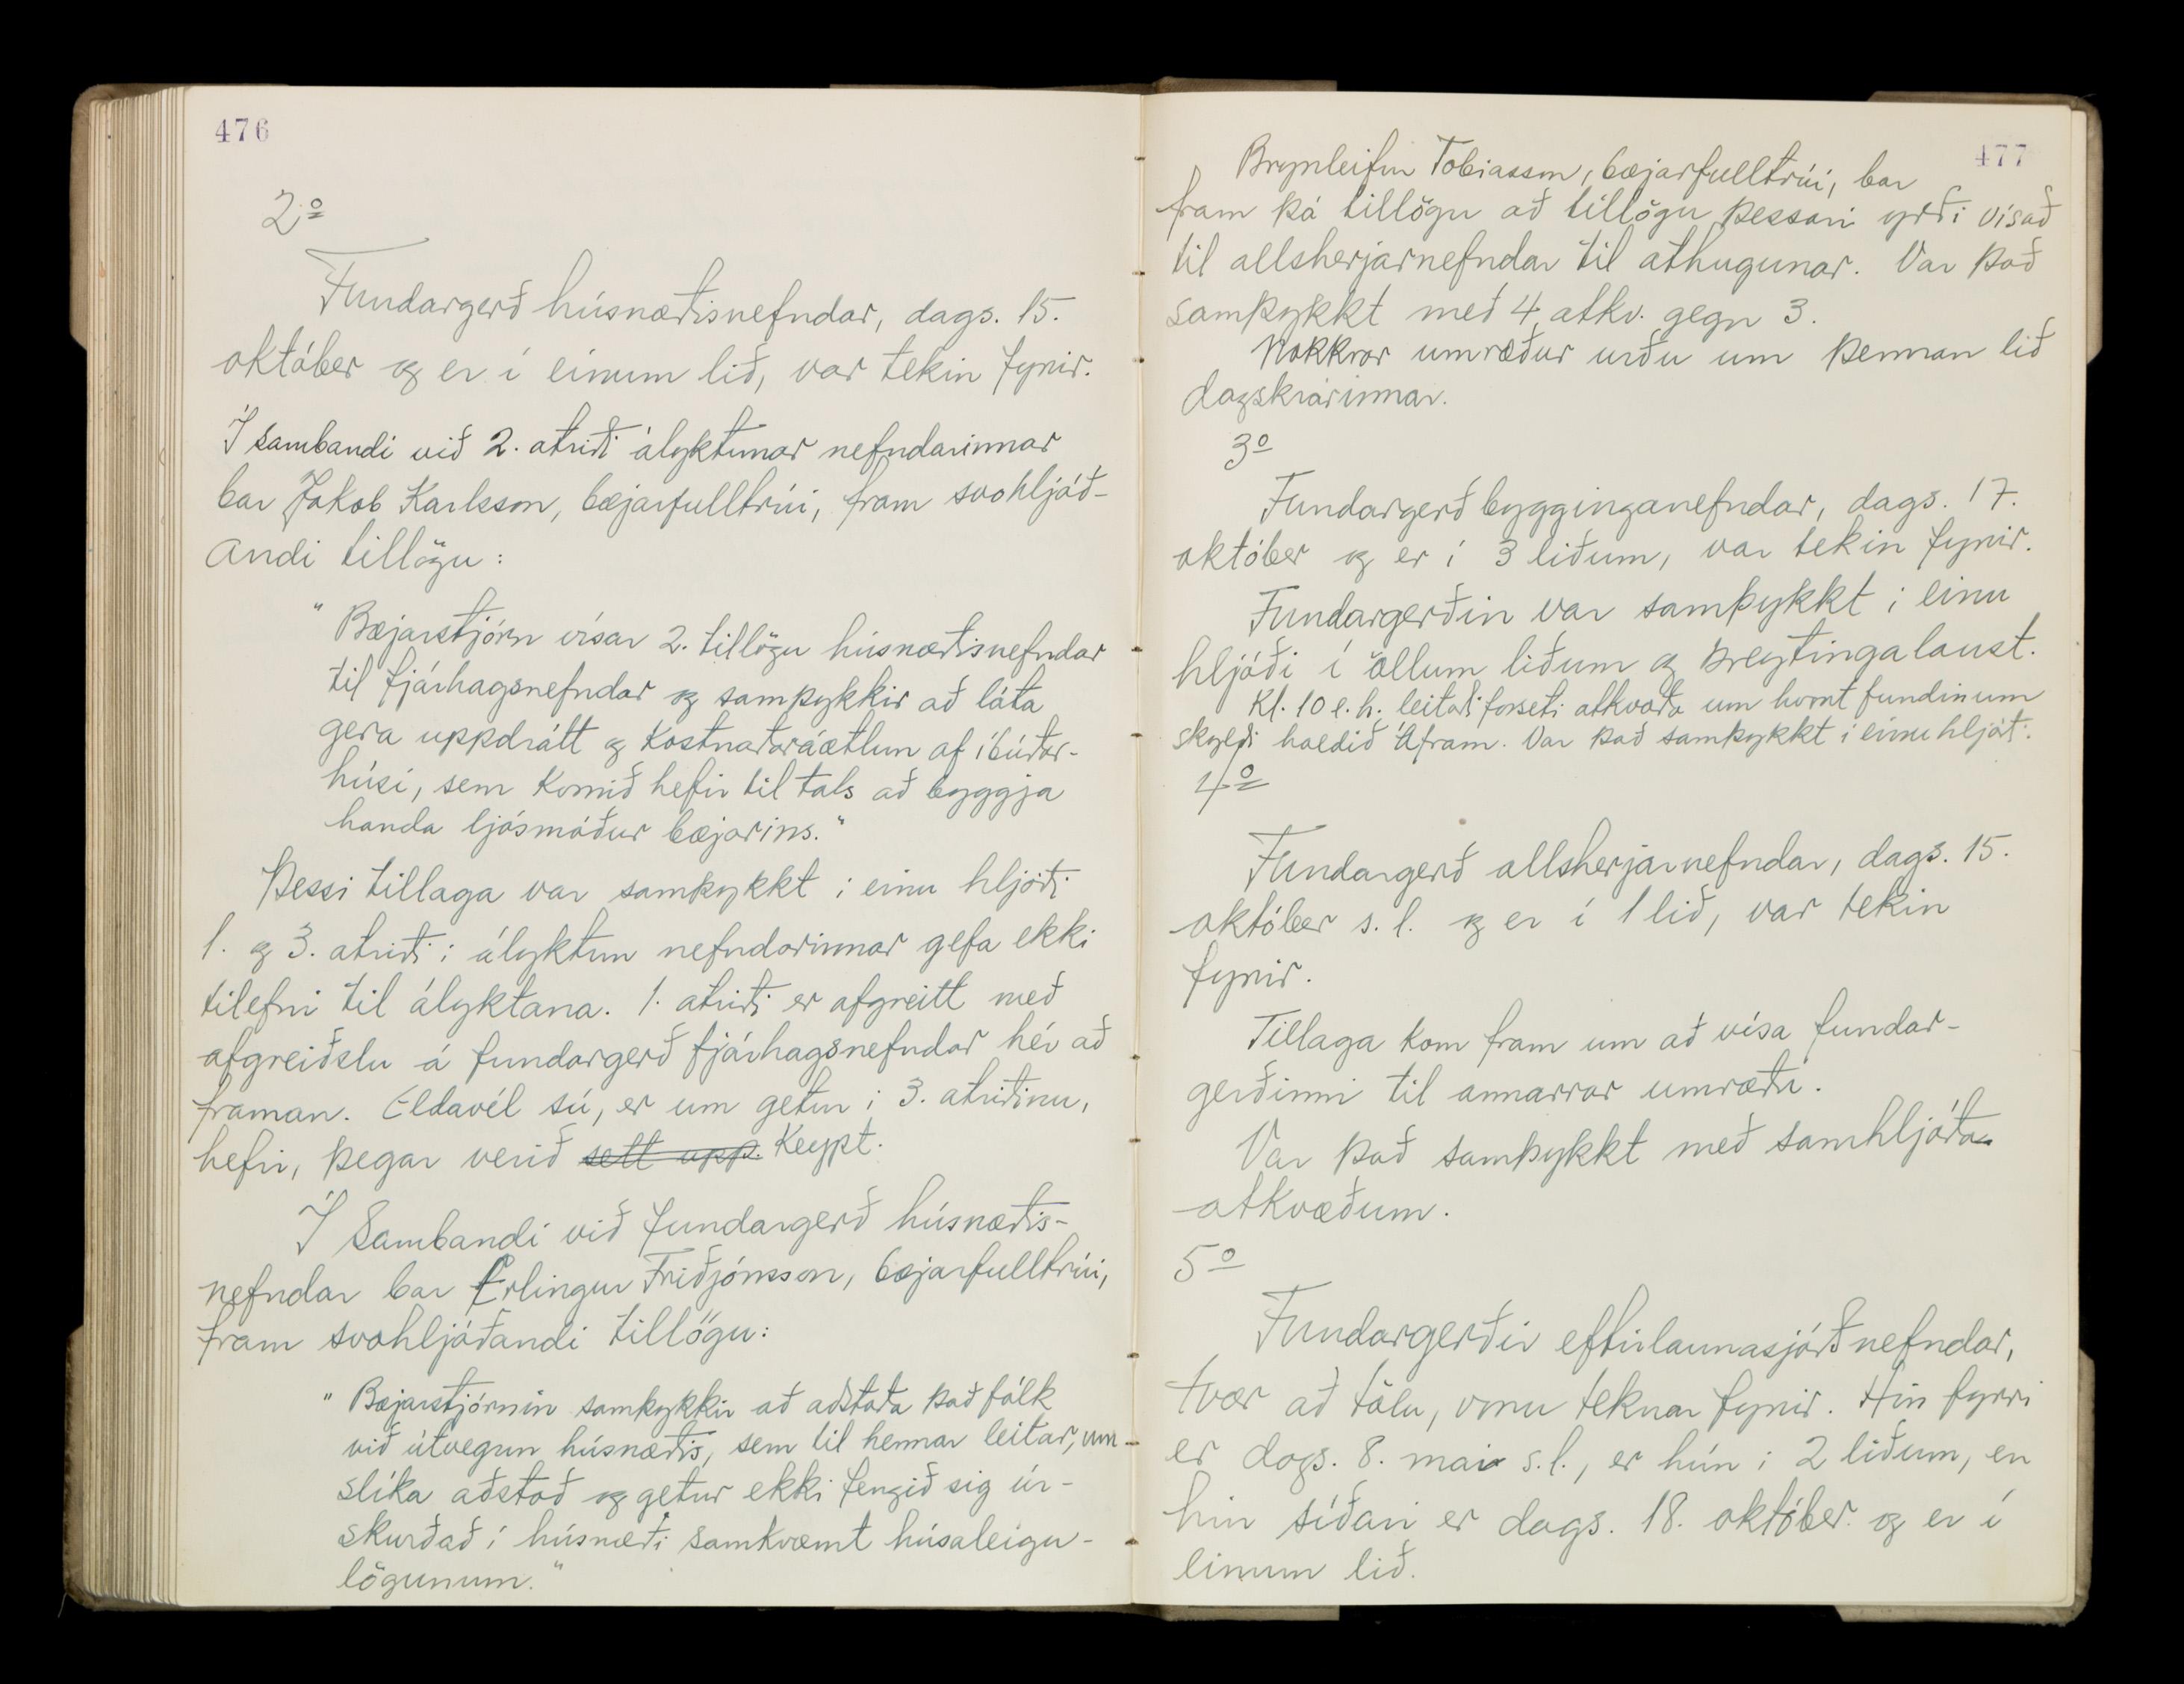 476
2.o
Fundargerð húsnæðisnefndar, dags. 15.
október og er í einum lið, var tekin fyrir.
Í sambandi við 2. atriði ályktunar nefndarinnar
bar Jakob Karlsson, bæjarfulltrúi, fram svohljóð-
andi tillögu:
"Bæjarstjórn vísar 2. tillögu húsnæðisnefndar
til fjárhagsnefndar og samþykkir að láta
gera uppdrátt og kostnaðaráætlun af íbúðar-
húsi, sem komið hefir til tals að byggja
handa ljósmóður bæjarins."
Þessi tillaga var samþykkt í einu hljóði
1. og 3. atriði í ályktun nefndarinnar gefa ekki
tilefni til ályktana. 1. atriði er afgreitt með
afgreiðslu á fundargerð fjárhagsnefndar hér að
framan. Eldavél sú, er um getur í 3. atriðinu,
hefir, þegar verið sett upp. keypt.
Í sambandi við fundargerð húsnæðis-
nefndar bar Erlingur Friðjónsson, bæjarfulltrúi,
fram svohljóðandi tillögu:
"Bæjarstjórnin samþykkir að aðstoða það fólk
við útvegun húsnæðis, sem til hennar leitar, um
slíka aðstoð og getur ekki fengið sig úr-
skurðað í húsnæði samkvæmt húsaleigu-
lögunum."
477
Brynleifur Tobiasson, bæjarfulltrúi, bar
fram þá tillögu að tillögu þessari yrði vísað
til allsherjarnefndar til athugunar. Var það
samþykkt með 4 atkv. gegn 3.
Nokkrar umræður urðu um þennan lið
dagskrárinnar.
3o
Fundargerð bygginganefndar, dags. 17.
október og er í 3 liðum, var tekin fyrir.
Fundargerðin var samþykkt í einu
hljóði í öllum liðum og breytingalaust.
Kl. 10 e.h. leitaði forseti atkvæða um hvort fundinum
skyldi haldið áfram. Var það samþykkt í einu hljóði.
4o
Fundargerð allsherjarnefndar, dags. 15.
október s.l. og er í 1 lið, var tekin
fyrir.
Tillaga kom fram um að vísa fundar-
gerðinni til annarrar umræðu.
Var það samþykkt með samhljóða
atkvæðum.
5o
Fundargerðir eftirlaunasjóðsnefndar,
tvær að tölu, voru teknar fyrir. Hin fyrri
er dags. 8. mai s.l., er hún í 2 liðum, en
hin síðari er dags. 18. október og er í
einum lið.